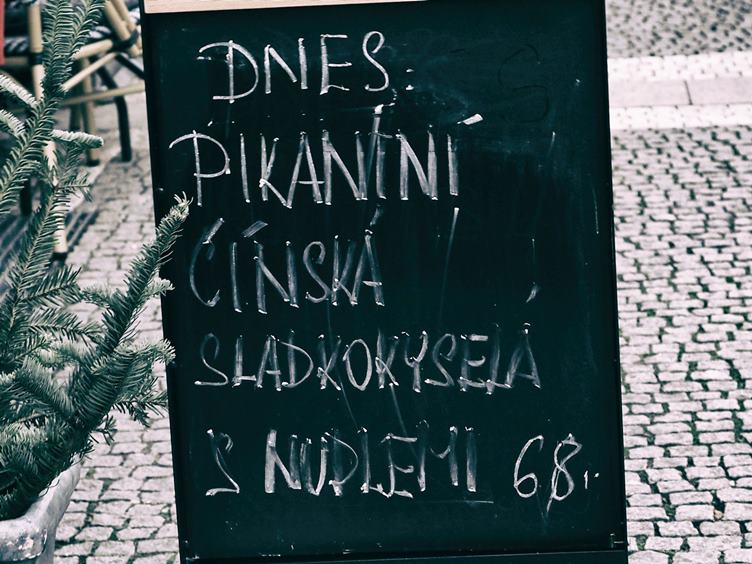 DNES:
PIKANTNÍ
ČÍNSKÁ
SLADKOKYSELÁ
S NUDLEMI 68,-